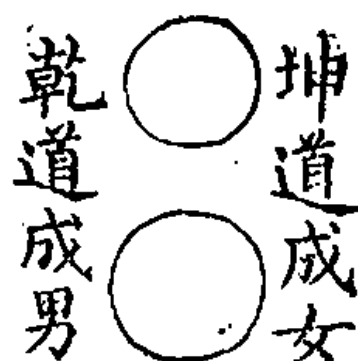 坤道成女
乾道成男